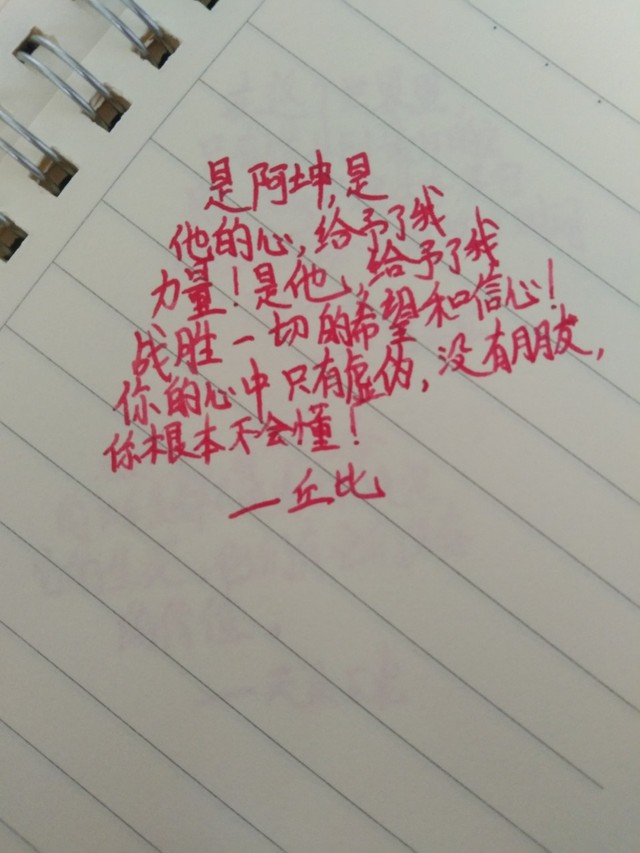 是阿坤,是
他的心,给予了我
力量!是他,给予了我
战胜一切的希望和信心!
你的心中只有虚伪,没有朋友,
你根本不会懂!
—丘比